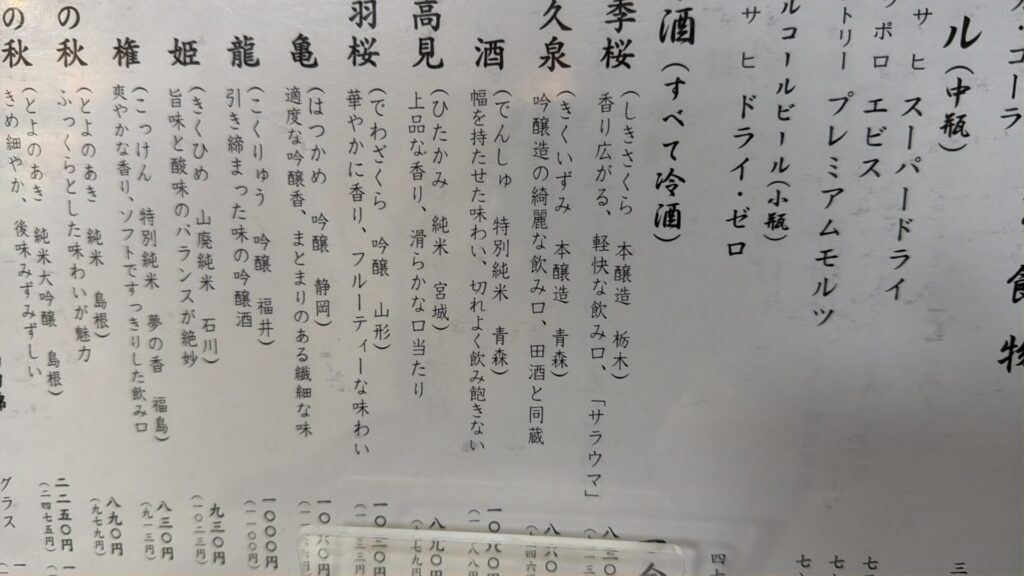 ル(中瓶)
サヒ スーパードライ
ッポロ エビス
トリー プレミアムモルツ
ルコールビール(小瓶)
サヒ ドライ・ゼロ
酒(すべて冷酒)
季桜
(しきさくら 本醸造 栃木)
香り広がる、軽快な飲み口、「サラウマ」
久泉
(きくいずみ 本醸造 青森)
吟醸造の綺麗な飲み口、田酒と同蔵
酒
(でんしゅ 特別純米 青森)
幅を持たせた味わい、切れよく飲み飽きない
一〇八〇円
高見
(ひたかみ 純米 宮城)
上品な香り、滑らかな口当たり
八九〇円
羽桜
(でわざくら 吟醸 山形)
華やかに香り、フルーティーな味わい
一〇三〇円
亀
(はつかめ 吟醸 静岡)
適度な吟醸香、まとまりのある繊細な味
一〇六〇円
龍
(こくりゅう 吟醸 福井)
引き締まった味の吟醸酒
一〇〇〇円
(一一〇〇円)
姫
(きくひめ 山廃純米 石川)
旨味と酸味のバランスが絶妙
九三〇円
(一〇二三円)
権
(こっけん 特別純米 夢の香 福島)
爽やかな香り、ソフトですっきりした飲み口
八三〇円
(九一三円)
の秋
(とよのあき 純米 島根)
ふっくらとした味わいが魅力
八九〇円
(九七九円)
の秋
(とよのあき 純米大吟醸 島根)
きめ細やか、後味みずみずしい
二二五〇円
(二四七五円)
グラス